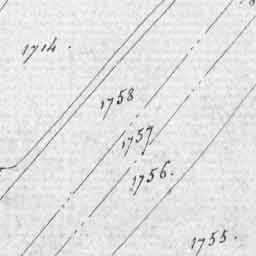 1714.
1758
1757
1756.
1755.